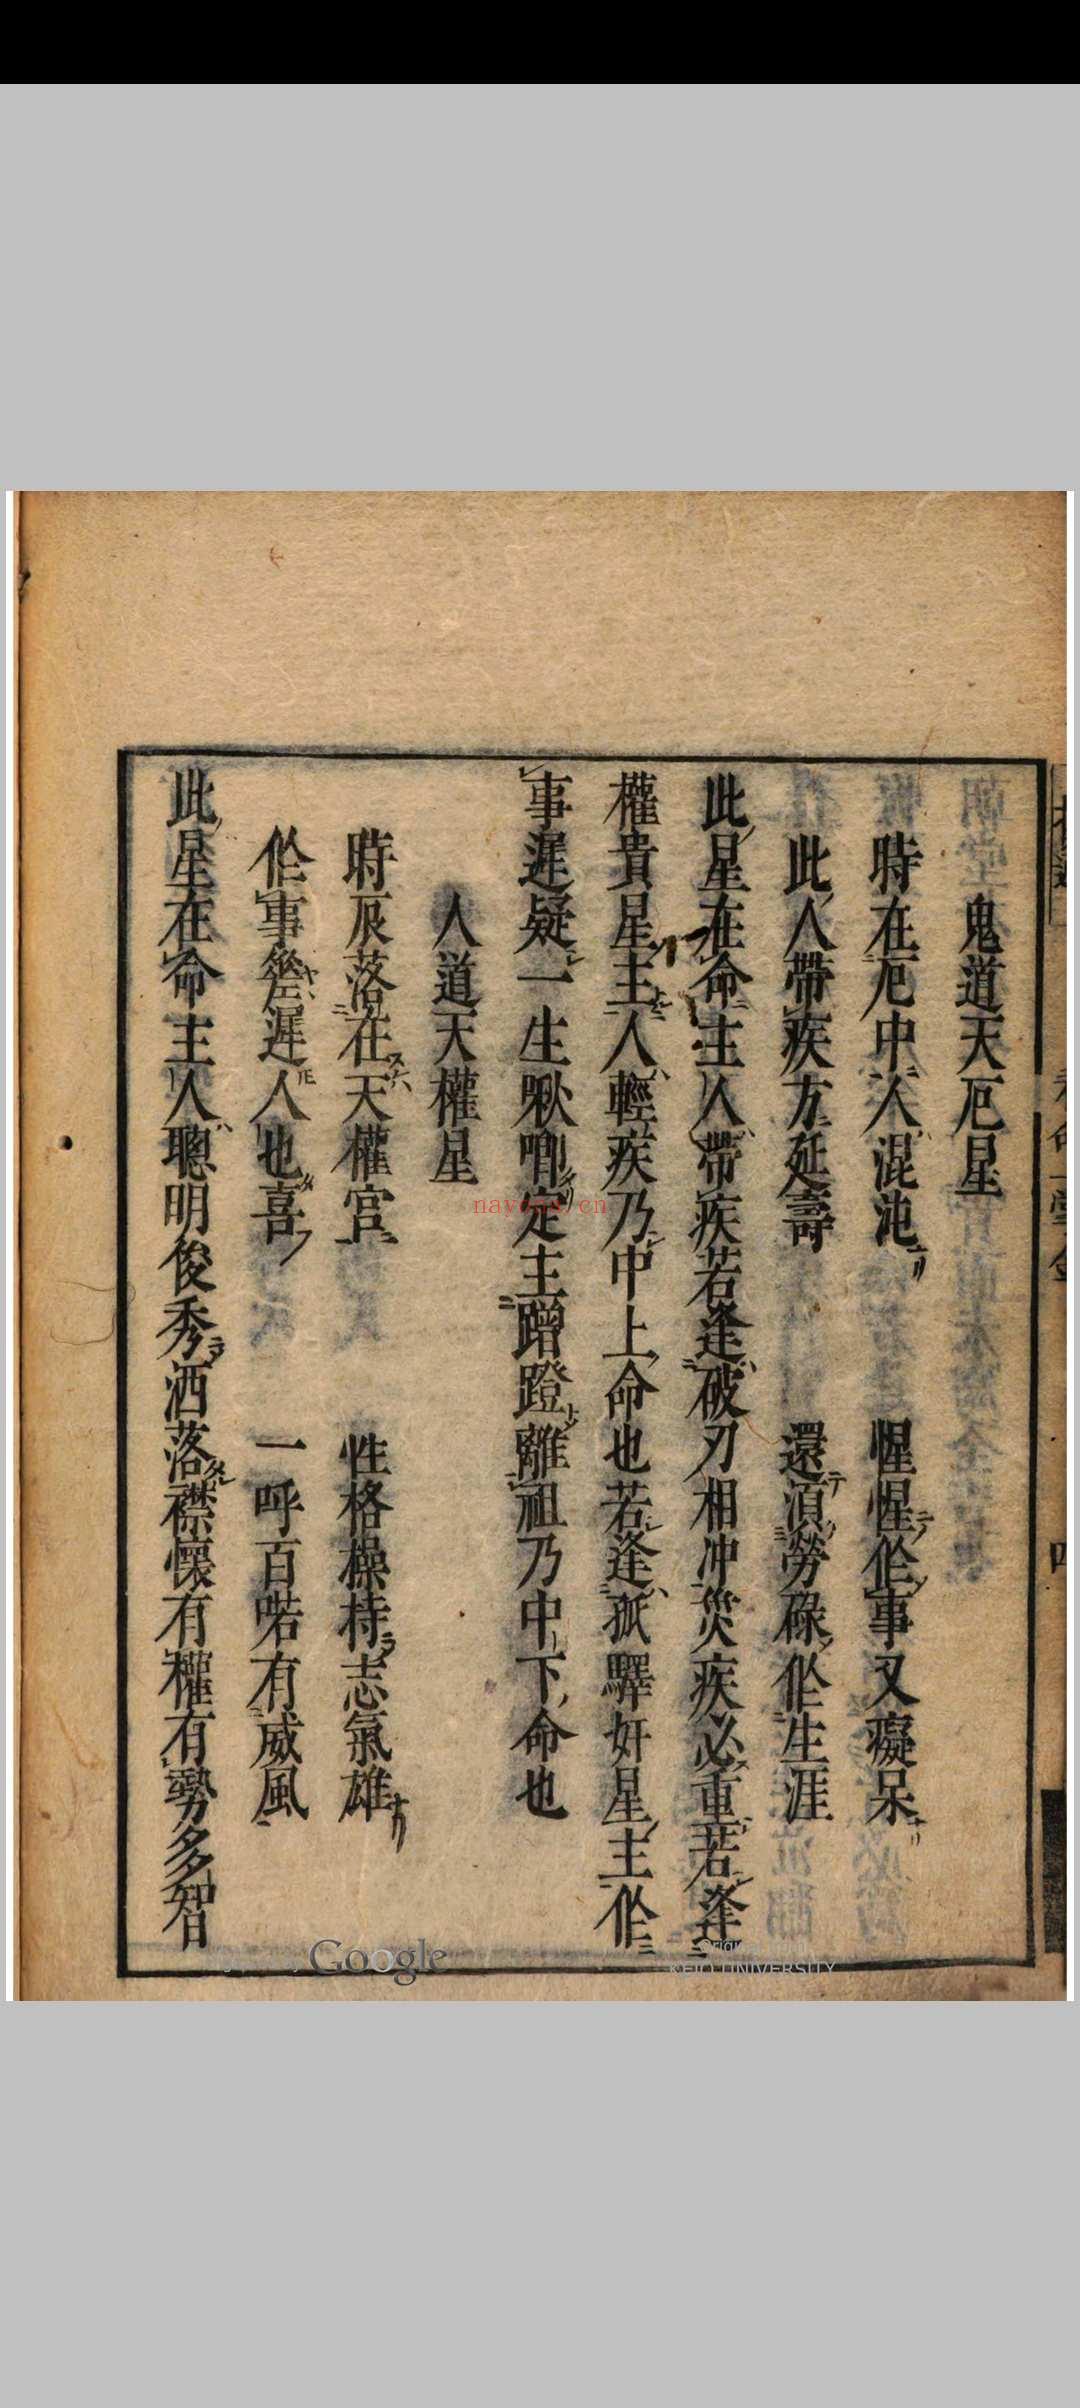 鬼道天厄星
時在厄中人混沌 惺惺作事又癡呆
此人帶疾方延壽 還須勞碌作生涯
此星在命主人帶疾若逢破刃相冲災疾必重若逢
權貴星主人輕疾乃中上命也若逢孤驛奸星主作
事遲疑一生啾唧定主蹭蹬離祖乃中下命也
人道天權星
時辰落在天權宮 性格操持志氣雄
作事
遲人也喜 一呼百喏有威風
此星在命主人聰明俊秀洒落襟懷有權有勢多智
nayona.cn
Google
KEIO UNIVERSITY